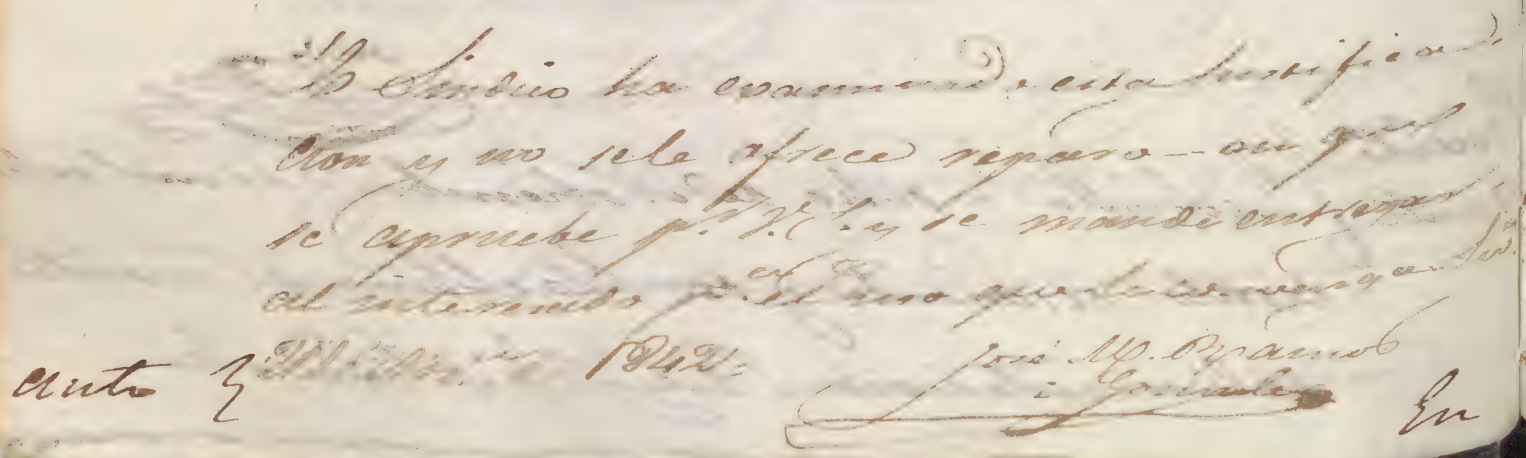 El Sindico ha examinado esta Justifica
cion y no sele ofrece reparo — en que
se apruebe p.r V.C. y se mande entregar
al interesado p.a el uso que le convenga
1842.
José M. Ramos
i Gonzales
auto En